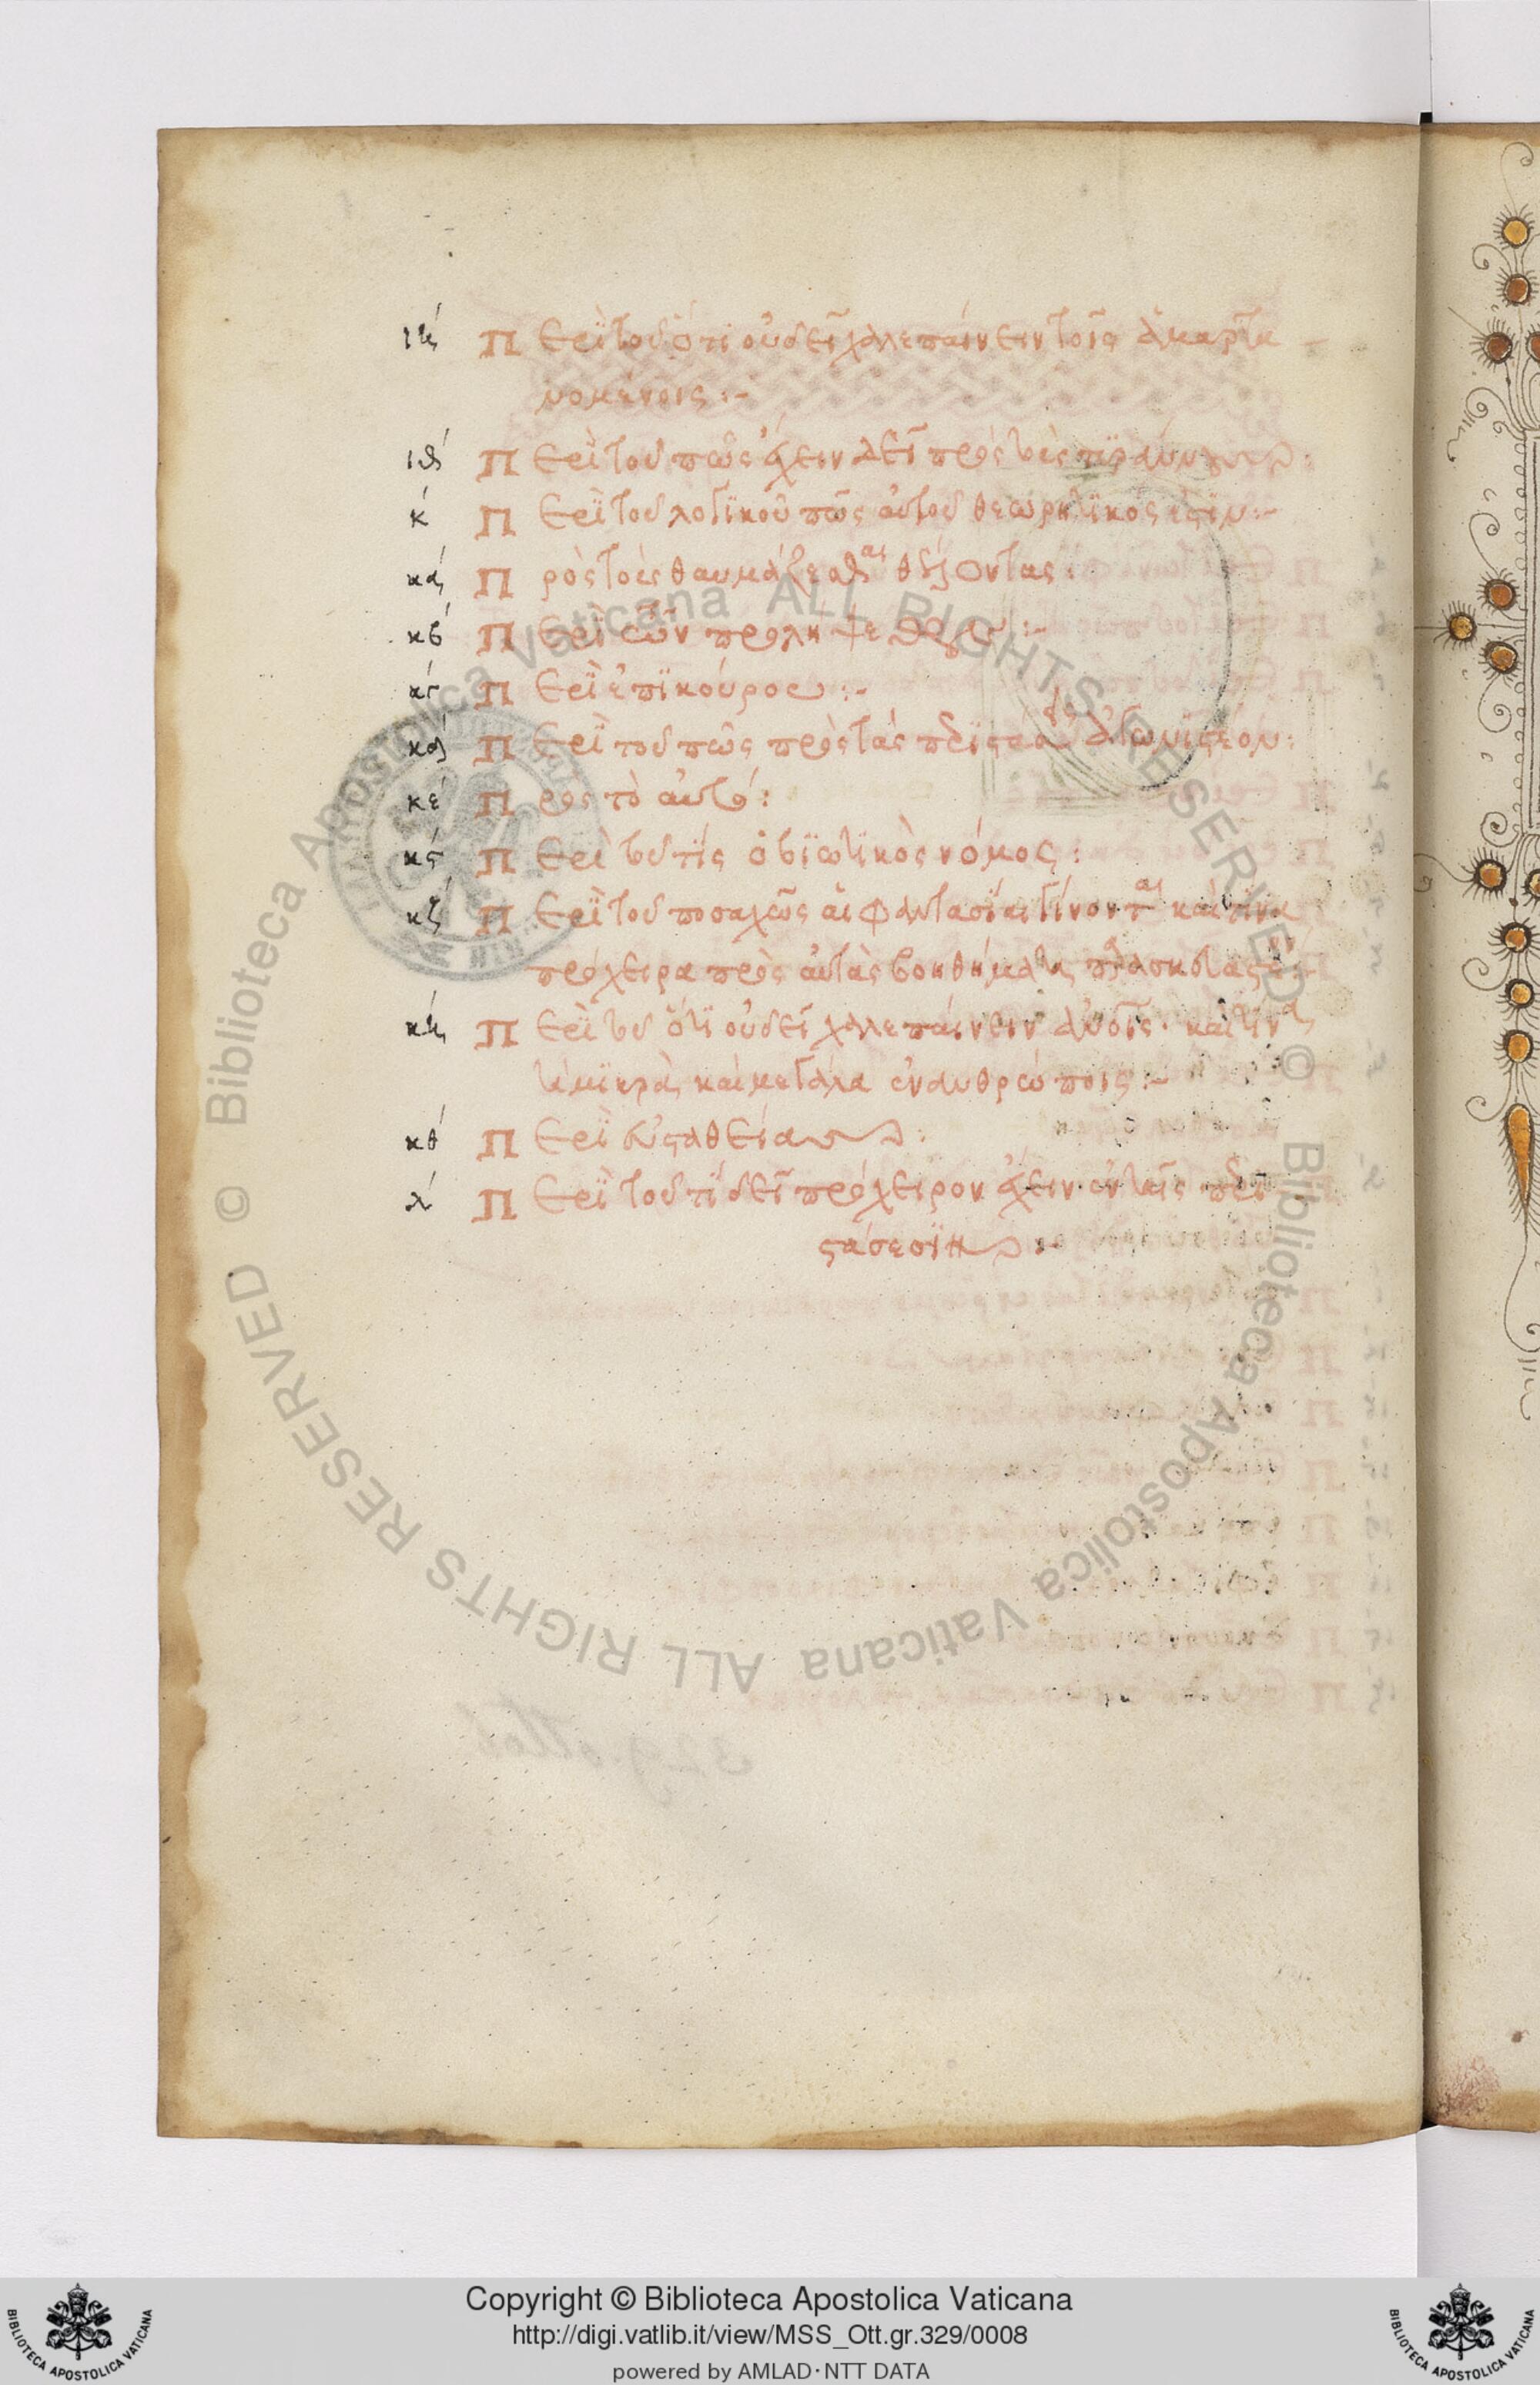 ιη Περὶ τοῦ ὅτι οὐ δεῖ χαλεπαίνειν τοῖς ἁμαρτα
νομένοις :-
ιθ Περὶ τοῦ πῶς ἔχειν δεῖ πρὸς τοὺς τυράννους :
κ Περὶ τοῦ λογικοῦ πῶς αὑτοῦ θεωρητικός ἐστιν :-
κα Πρὸς τοὺς θαυμάζεσθαι θέλοντας :
κβ Περὶ τῶν προλήψεων :-
κγ Περὶ ἐπικούρου :-
κδ Περὶ τοῦ πῶς πρὸς τὰς περιστάσεις ἀγωνιστέον :
κε Πρὸς τὸ αὐτό :
κς Περὶ τοῦ τίς ὁ βιωτικὸς νόμος :
κζ Περὶ τοῦ ποσαχῶς αἱ φαντασίαι γίνονται καὶ τίνα
πρόχειρα πρὸς αὐτὰς βοηθήματα
κη Περὶ τοῦ ὅτι οὐ δεῖ χαλεπαίνειν ἀνοις · καὶ τίνα
τὰ μικρὰ καὶ μεγάλα ἐν ἀνθρώποις :-
κθ Περὶ εὐσταθείας :
λ Περὶ τοῦ τί δεῖ πρόχειρον ἔχειν ἐν ταῖς περι
στάσεσιν :-
© Biblioteca Apostolica Vaticana ALL RIGHTS RESERVED © Biblioteca Apostolica Vaticana ALL RIGHTS RESERVED
Copyright © Biblioteca Apostolica Vaticana
http://digi.vatlib.it/view/MSS_Ott.gr.329/0008
powered by AMLAD·NTT DATA
BIBLIOTECA APOSTOLICA VATICANA
BIBLIOTECA APOSTOLICA VATICANA